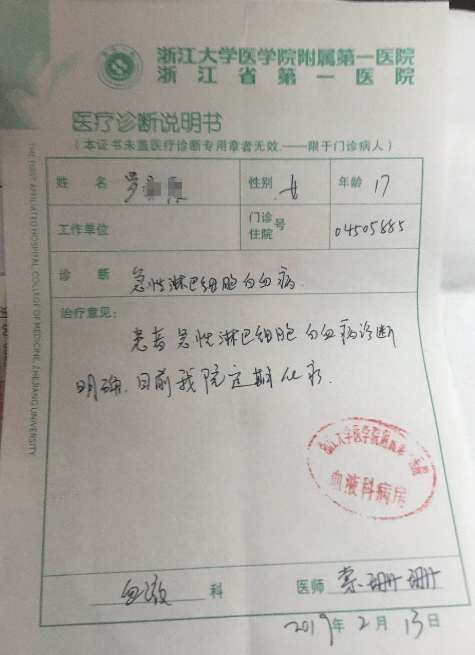 浙江大学医学院附属第一医院
浙江省第一医院
医疗诊断说明书
(本证书未盖医疗诊断专用章者无效.——限于门诊病人)
姓名 罗 性别 女 年龄 17
工作单位 门诊住院号 04505885
诊断 急性淋巴细胞白血病.
治疗意见:
患者急性淋巴细胞白血病诊断
明确.目前我院定期化疗.
浙江大学医学院附属第一医院
血液科病房
血液科 医师
2019年2月13日
THE FIRST AFFILIATED HOSPITAL, COLLEGE OF MEDICINE, ZHEJIANG UNIVERSITY